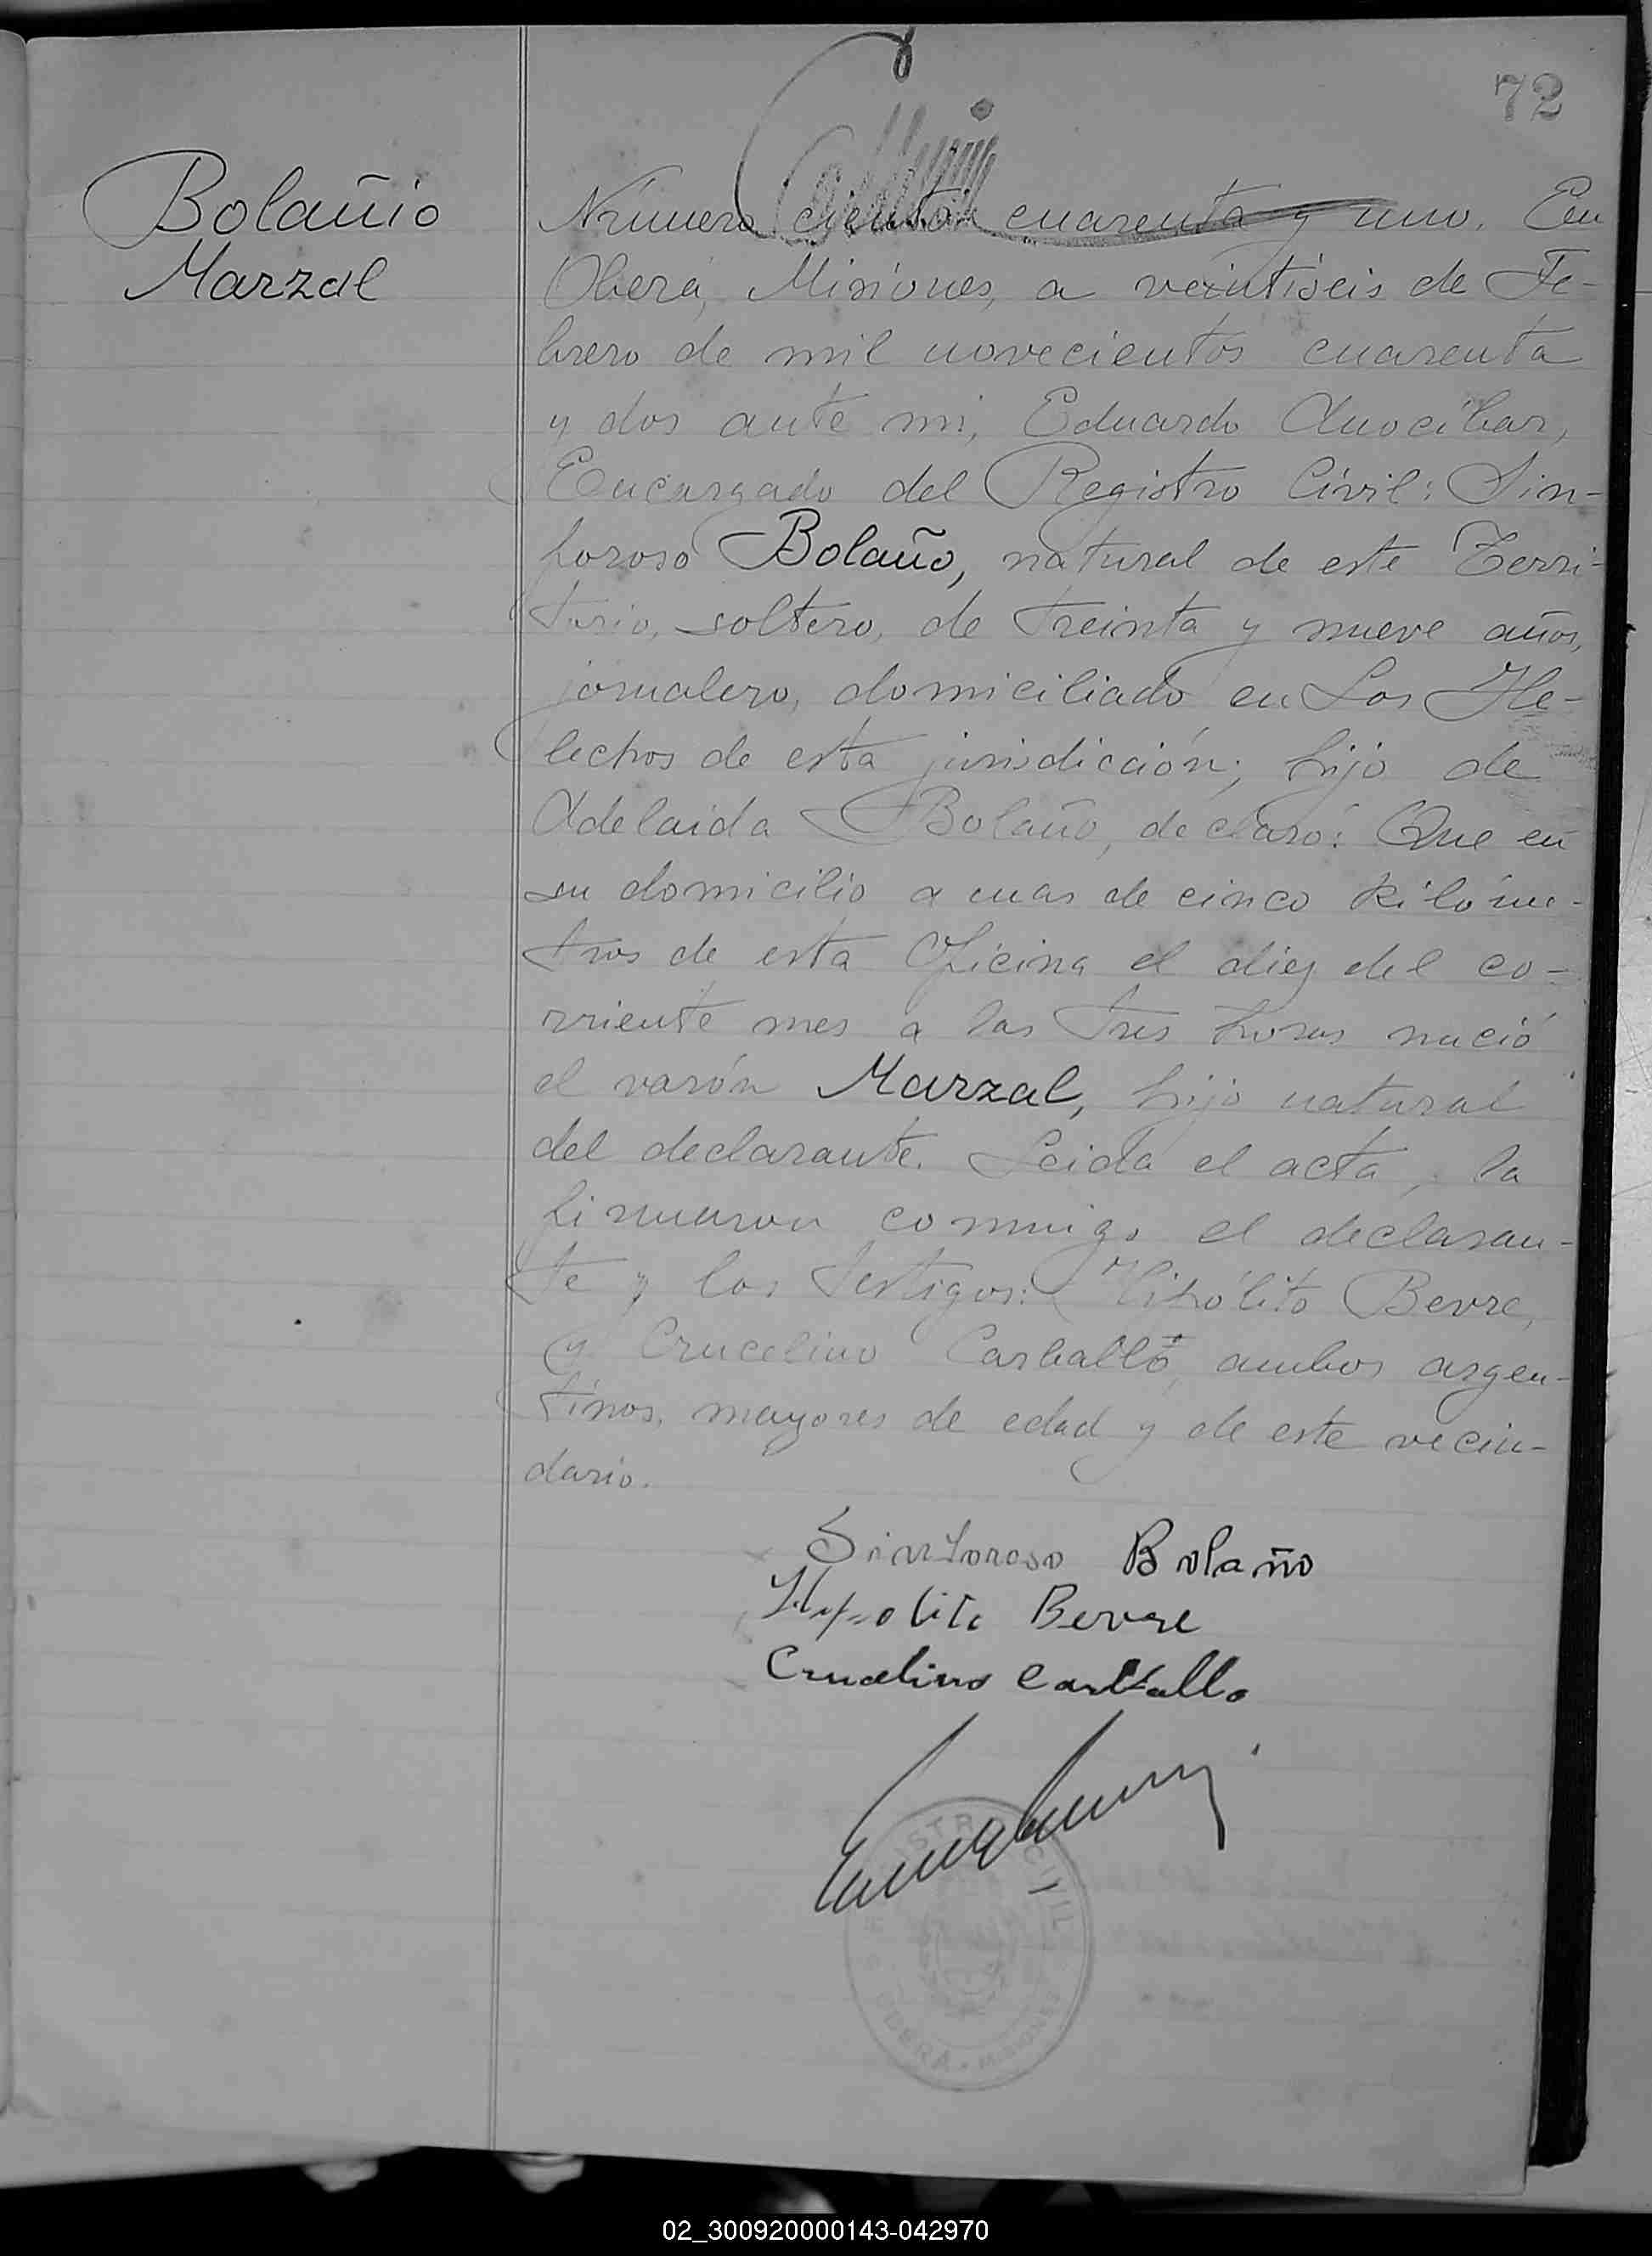 72
Bolañio
Marzal
Número ciento cuarenta y uno. En
Oberá, Misiones, a veintiseis de Fe-
brero de mil novecientos cuarenta
y dos ante mi, Eduardo Anocibar,
Encargado del Registro Civil: Sin-
foroso Bolaño, natural de este Terri-
torio, soltero, de treinta y nueve años,
jornalero, domiciliado en Los He-
lechos de esta jurisdicción; hijo de
Adelaida Bolaño, declaró: Que en
su domicilio a mas de cinco kilóme-
tros de esta Oficina el diez del co-
rriente mes a las tres horas nació
el varón Marzal, hijo natural
del declarante. Leida el acta, la
firmaron conmigo el declaran-
te y los testigos: Hipólito Bevre,
y Crucelino Carballo, ambos argen-
tinos, mayores de edad y de este vecin-
dario.
Sinforoso Bolaño
Hipolito Bevre
Crucelino Carballo
REGISTRO CIVIL
OBERÁ - MISIONES
02_300920000143-042970